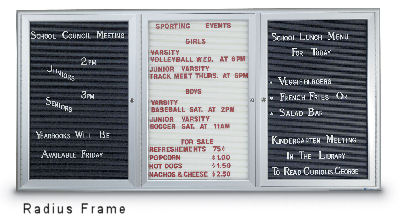 School Council Meeting
2pm
Juniors
3pm
Seniors
Yearbooks Will Be
Available Friday
SPORTING EVENTS
GIRLS
VARSITY
VOLLEYBALL WED. AT 6PM
JUNIOR VARSITY
TRACK MEET THURS. AT 6PM
BOYS
VARSITY
BASEBALL SAT. AT 2PM
JUNIOR VARSITY
SOCCER SAT. AT 11AM
FOR SALE
REFRESHEMENTS 75¢
POPCORN $1.00
HOT DOGS $1.50
NACHOS & CHEESE $2.50
School Lunch Menu
For Today
• Veggie-burgers
• French Fries Or
• Salad Bar
Kindergarten Meeting
In The Library
To Read Curious George
Radius Frame